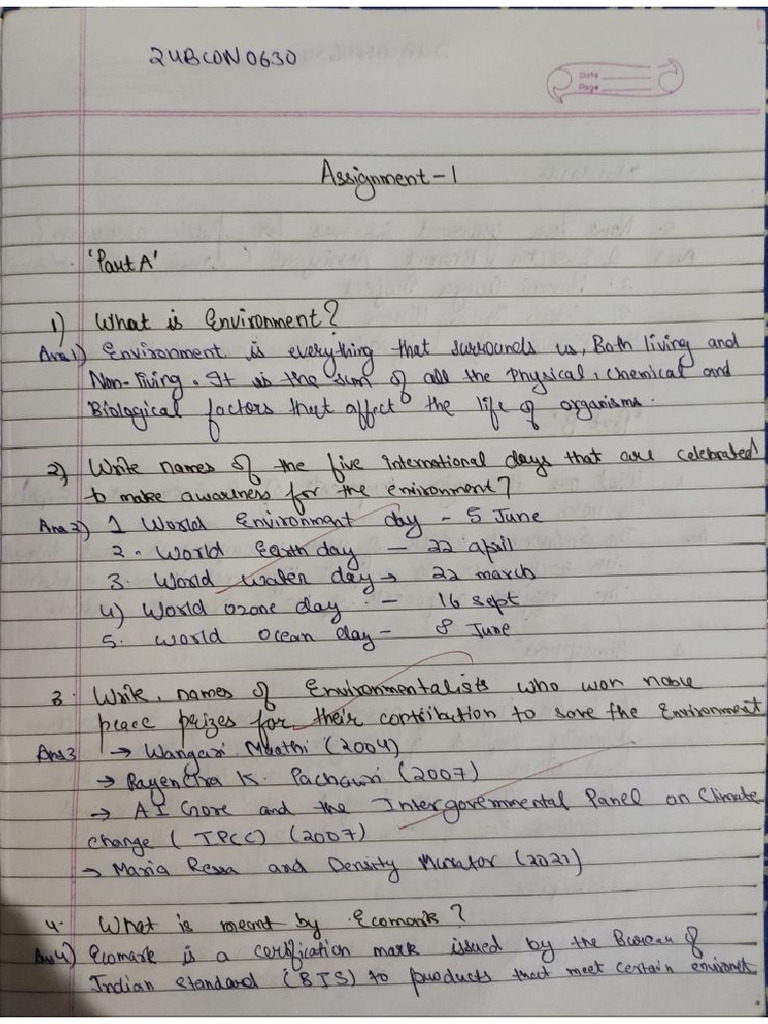 24BCON0630
Date
Page
Assignment-1
'Part A'
1) What is Environment?
Ans 1) Environment is everything that surrounds us, Both living and
Non-living. It is the sum of all the Physical, chemical and
Biological factors that affect the life of organisms.
2) Write names of the five international days that are celebrated
to make awareness for the environment?
Ans 2) 1 World Environment day - 5 June
2. World Earth day - 22 april
3. World water day → 22 march
4) World ozone day - 16 sept
5. World Ocean day - 8 June
3. Write names of Environmentalists who won noble
peace prizes for their contribution to save the Environment
Ans 3 → Wangari Maathi (2004)
→ Rajendra K. Pachauri (2007)
→ Al Gore and the Intergovernmental Panel on Climate
change (IPCC) (2007)
→ Maria Ressa and Muratov (2021)
4. What is meant by Ecomark?
Ans 4) Ecomark is a certification mark issued by the Bureau of
Indian Standard (BIS) to products that meet certain